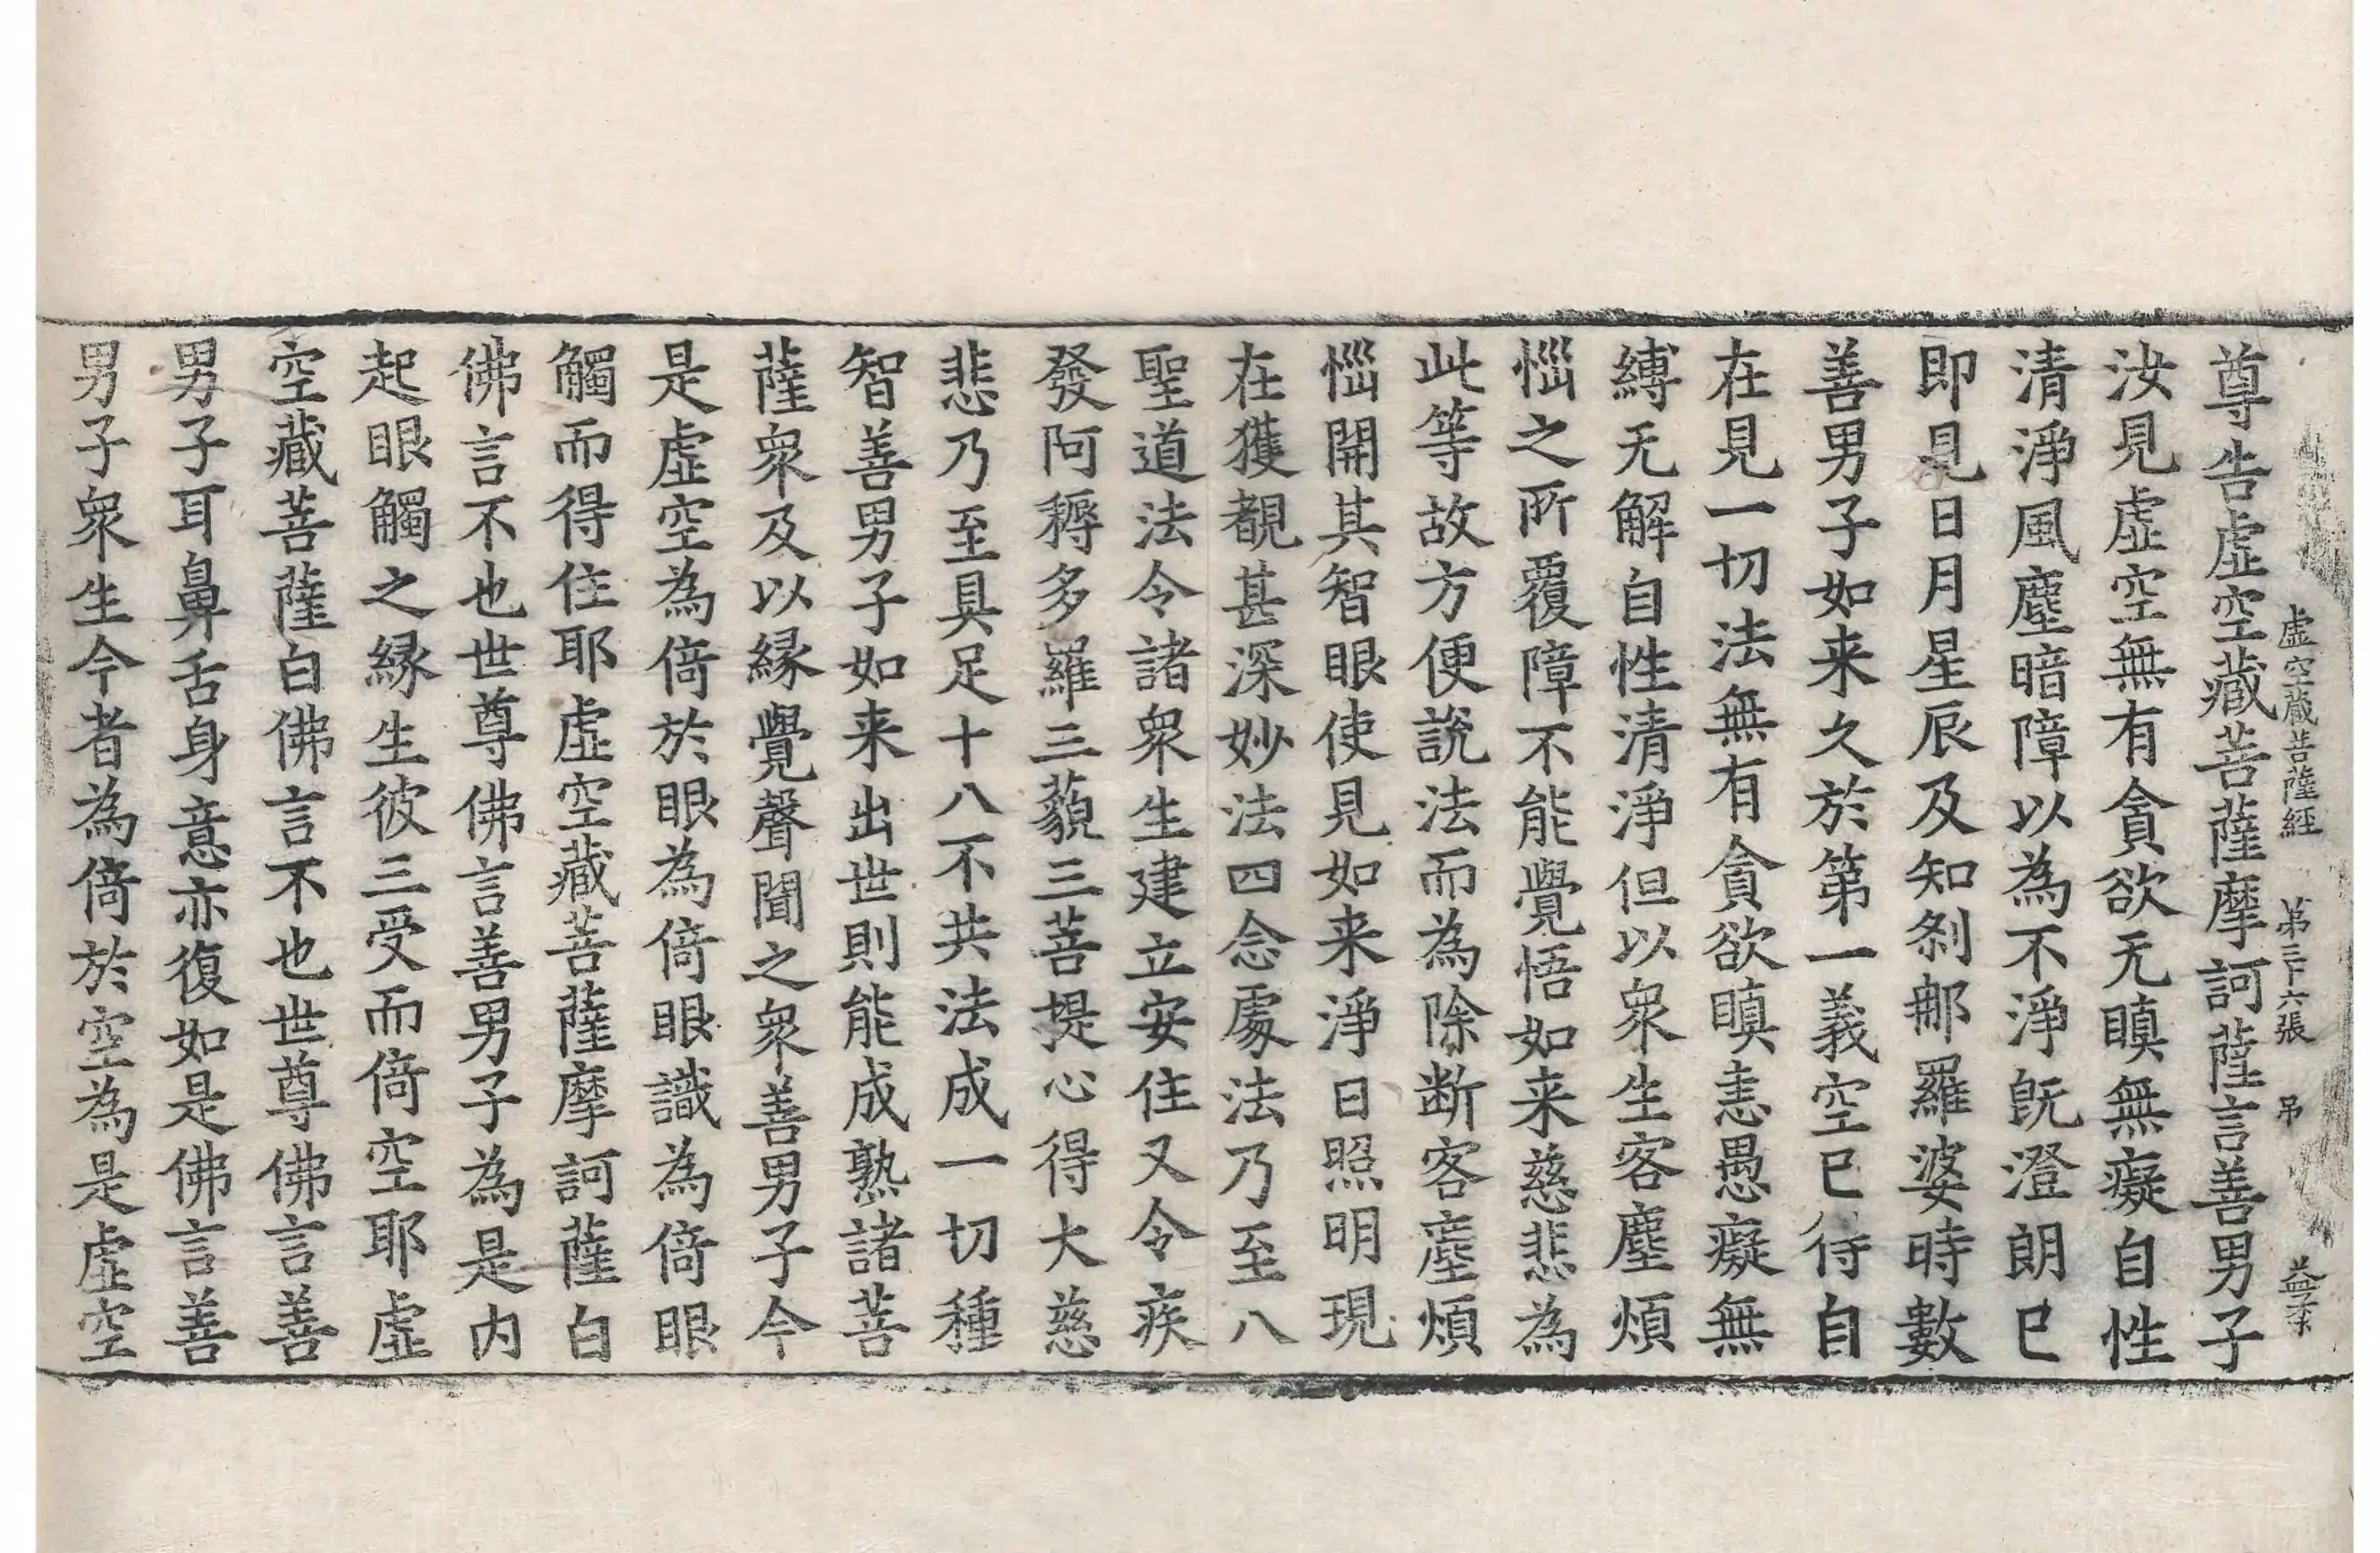 虛空藏菩薩經 第三十六張 吊
尊告虛空藏菩薩摩訶薩言善男子
汝見虛空無有貪欲无瞋無癡自性
清淨風塵暗障以為不淨旣澄朗已
即見日月星辰及知剎那羅婆時數
善男子如来久於第一義空已得自
在見一切法無有貪欲瞋恚愚癡無
縛无解自性清淨但以衆生客塵煩
惱之所覆障不能覺悟如来慈悲為
此等故方便說法而為除断客塵煩
惱開其智眼使見如来淨日照明現
在獲覩甚深妙法四念處法乃至八
聖道法令諸衆生建立安住又令疾
發阿耨多羅三藐三菩提心得大慈
悲乃至具足十八不共法成一切種
智善男子如来出世則能成熟諸菩
薩衆及以緣覺聲聞之衆善男子今
是虛空為倚於眼為倚眼識為倚眼
觸而得住耶虛空藏菩薩摩訶薩白
佛言不也世尊佛言善男子為是內
起眼觸之緣生彼三受而倚空耶虛
空藏菩薩白佛言不也世尊佛言善
男子耳鼻舌身意亦復如是佛言善
男子衆生今者為倚於空為是虛空